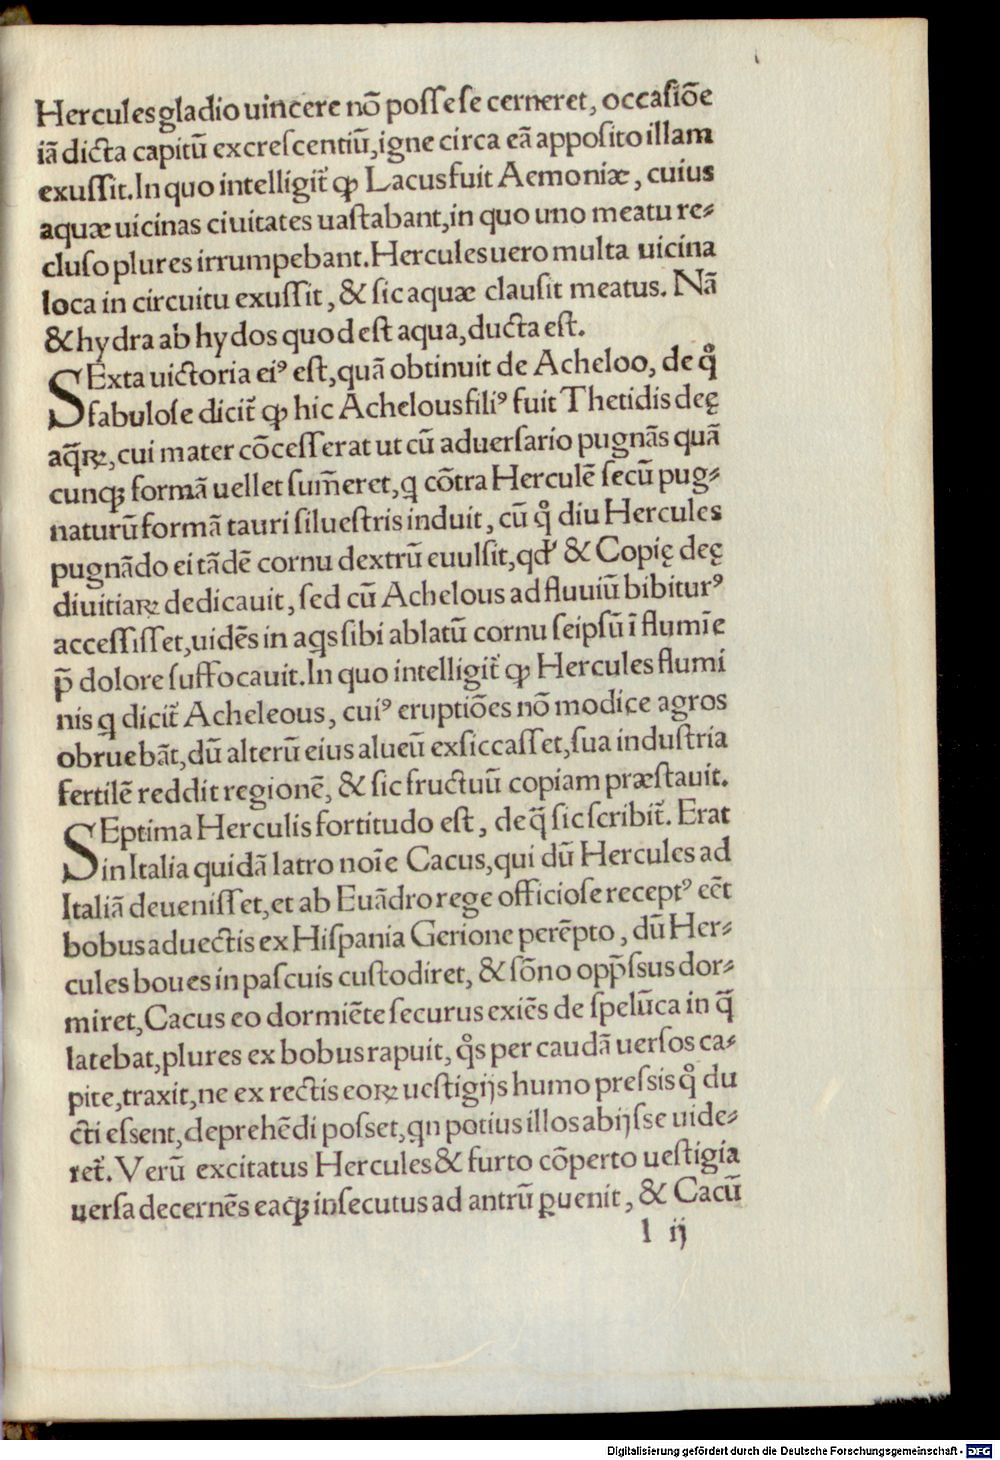 Hercules gladio uincere nõ posse se cerneret, occasiõe
iã dicta capitũ excrescentiũ, igne circa eã apposito illam
exussit. In quo intelligit̃ ꝙ Lacus fuit Aemoniæ, cuius
aquæ uicinas ciuitates uastabant, in quo uno meatu re⸗
cluso plures irrumpebant. Hercules uero multa uicina
loca in circuitu exussit, & sic aquæ clausit meatus. Nã
& hydra ab hydos quod est aqua, ducta est.
SExta uictoria eiꝰ est, quã obtinuit de Acheloo, de qͦ
fabulose dicit̃ ꝙ hic Achelous filiꝰ fuit Thetidis deę
aq̃ꝝ, cui mater cõcesserat ut cũ aduersario pugnãs quã
cunqꝫ formã uellet sum̃eret, q cõtra Herculẽ secũ pug⸗
naturũ formã tauri siluestris induit, cũ qͦ diu Hercules
pugnãdo ei tãdẽ cornu dextrũ euulsit, qd' & Copię deę
diuitiaꝝ dedicauit, sed cũ Achelous ad fluuiũ bibiturꝰ
accessisset, uidẽs in aqs sibi ablatũ cornu seipsũ ĩ flumĩe
p̃ dolore suffocauit. In quo intelligit̃ ꝙ Hercules flumi
nis q dicit̃ Acheleous, cuiꝰ eruptiões nõ modice agros
obruebãt, dũ alterũ eius alueũ exsiccasset, sua industria
fertilẽ reddit regionẽ, & sic fructuũ copiam præstauit.
SEptima Herculis fortitudo est, de q̃ sic scribit̃. Erat
in Italia quidã latro noĩe Cacus, qui dũ Hercules ad
Italiã deuenisset, et ab Euãdro rege officiose receptꝰ eẽt
bobus aduectis ex Hispania Gerione perẽpto, dũ Her⸗
cules boues in pascuis custodiret, & sõno opp̃ssus dor⸗
miret, Cacus eo dormiẽte securus exiẽs de spelũca in q̃
latebat, plures ex bobus rapuit, qͦs per caudã uersos ca⸗
pite, traxit, ne ex rectis eoꝝ uestigijs humo pressis qͦ du
cti essent, deprehẽdi posset, qn potius illos abijsse uide⸗
ret̃. Verũ excitatus Hercules & furto cõperto uestigia
uersa decernẽs eaqꝫ insecutus ad antrũ ꝑuenit, & Cacũ
l ij
Digitalisierung gefördert durch die Deutsche Forschungsgemeinschaft - DFG